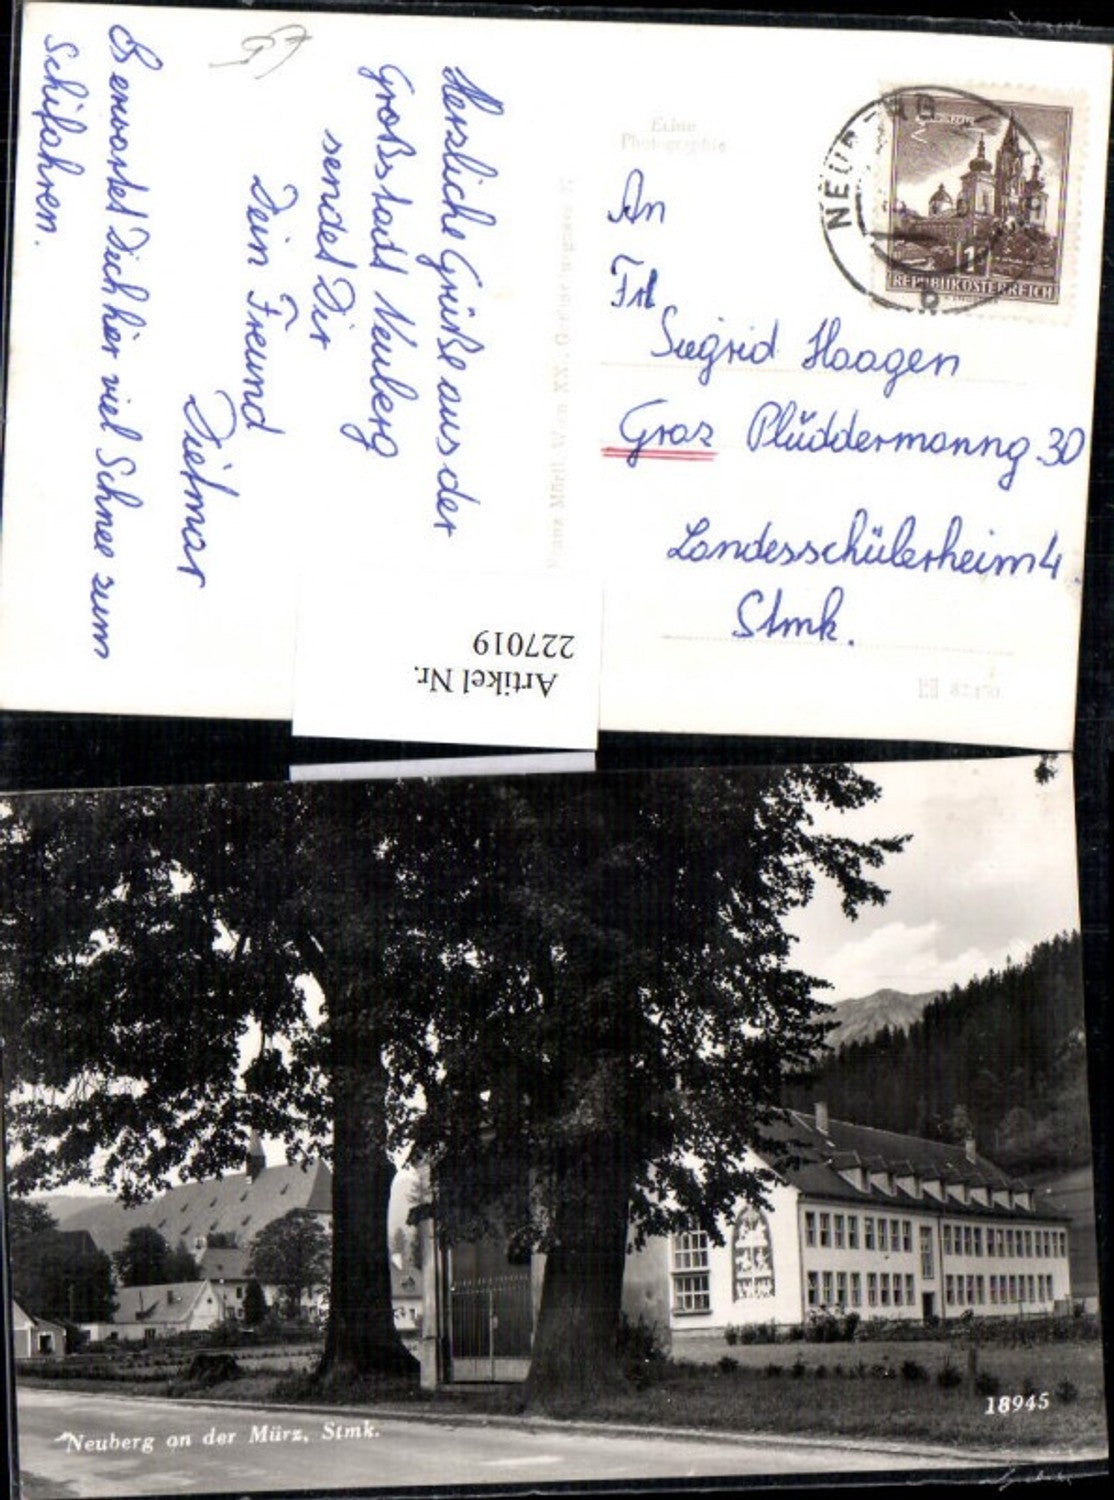 Herzliche Grüße aus der
Großstadt Neuberg
sendet Dir
Dein Freund
Dietmar
Es erwartet Dich hier viel Schnee zum
Schifahren.
Echte
Photographie
NEUBERG
1
REPUBLIK ÖSTERREICH
An
Frl
Siegrid Haagen
Graz Plüddemanng. 30
Landesschülerheim 4
Stmk.
Franz Mörtl, Wien XX.,
Artikel Nr.
227019
Neuberg an der Mürz, Stmk.
18945